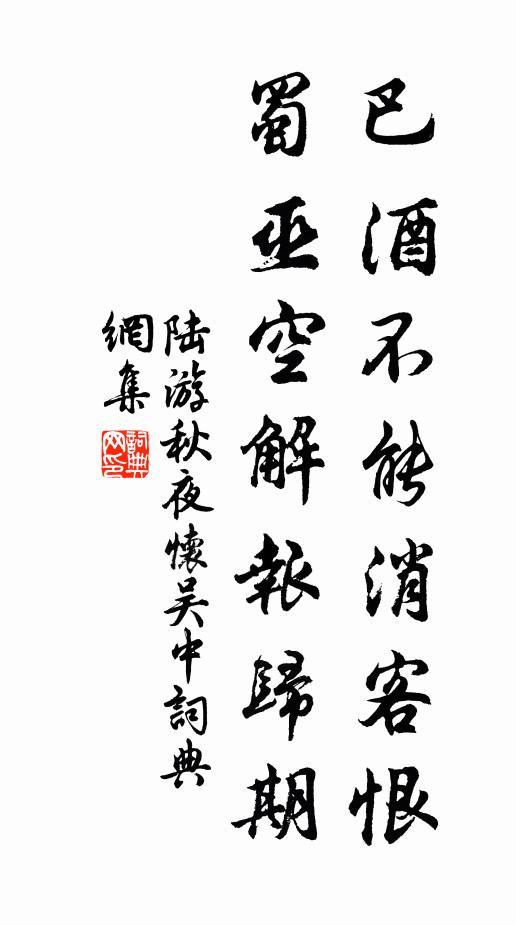 巴酒不能消客恨
蜀巫空解報歸期
陆游秋夜懷吴中詞典
網集
詞典
网印